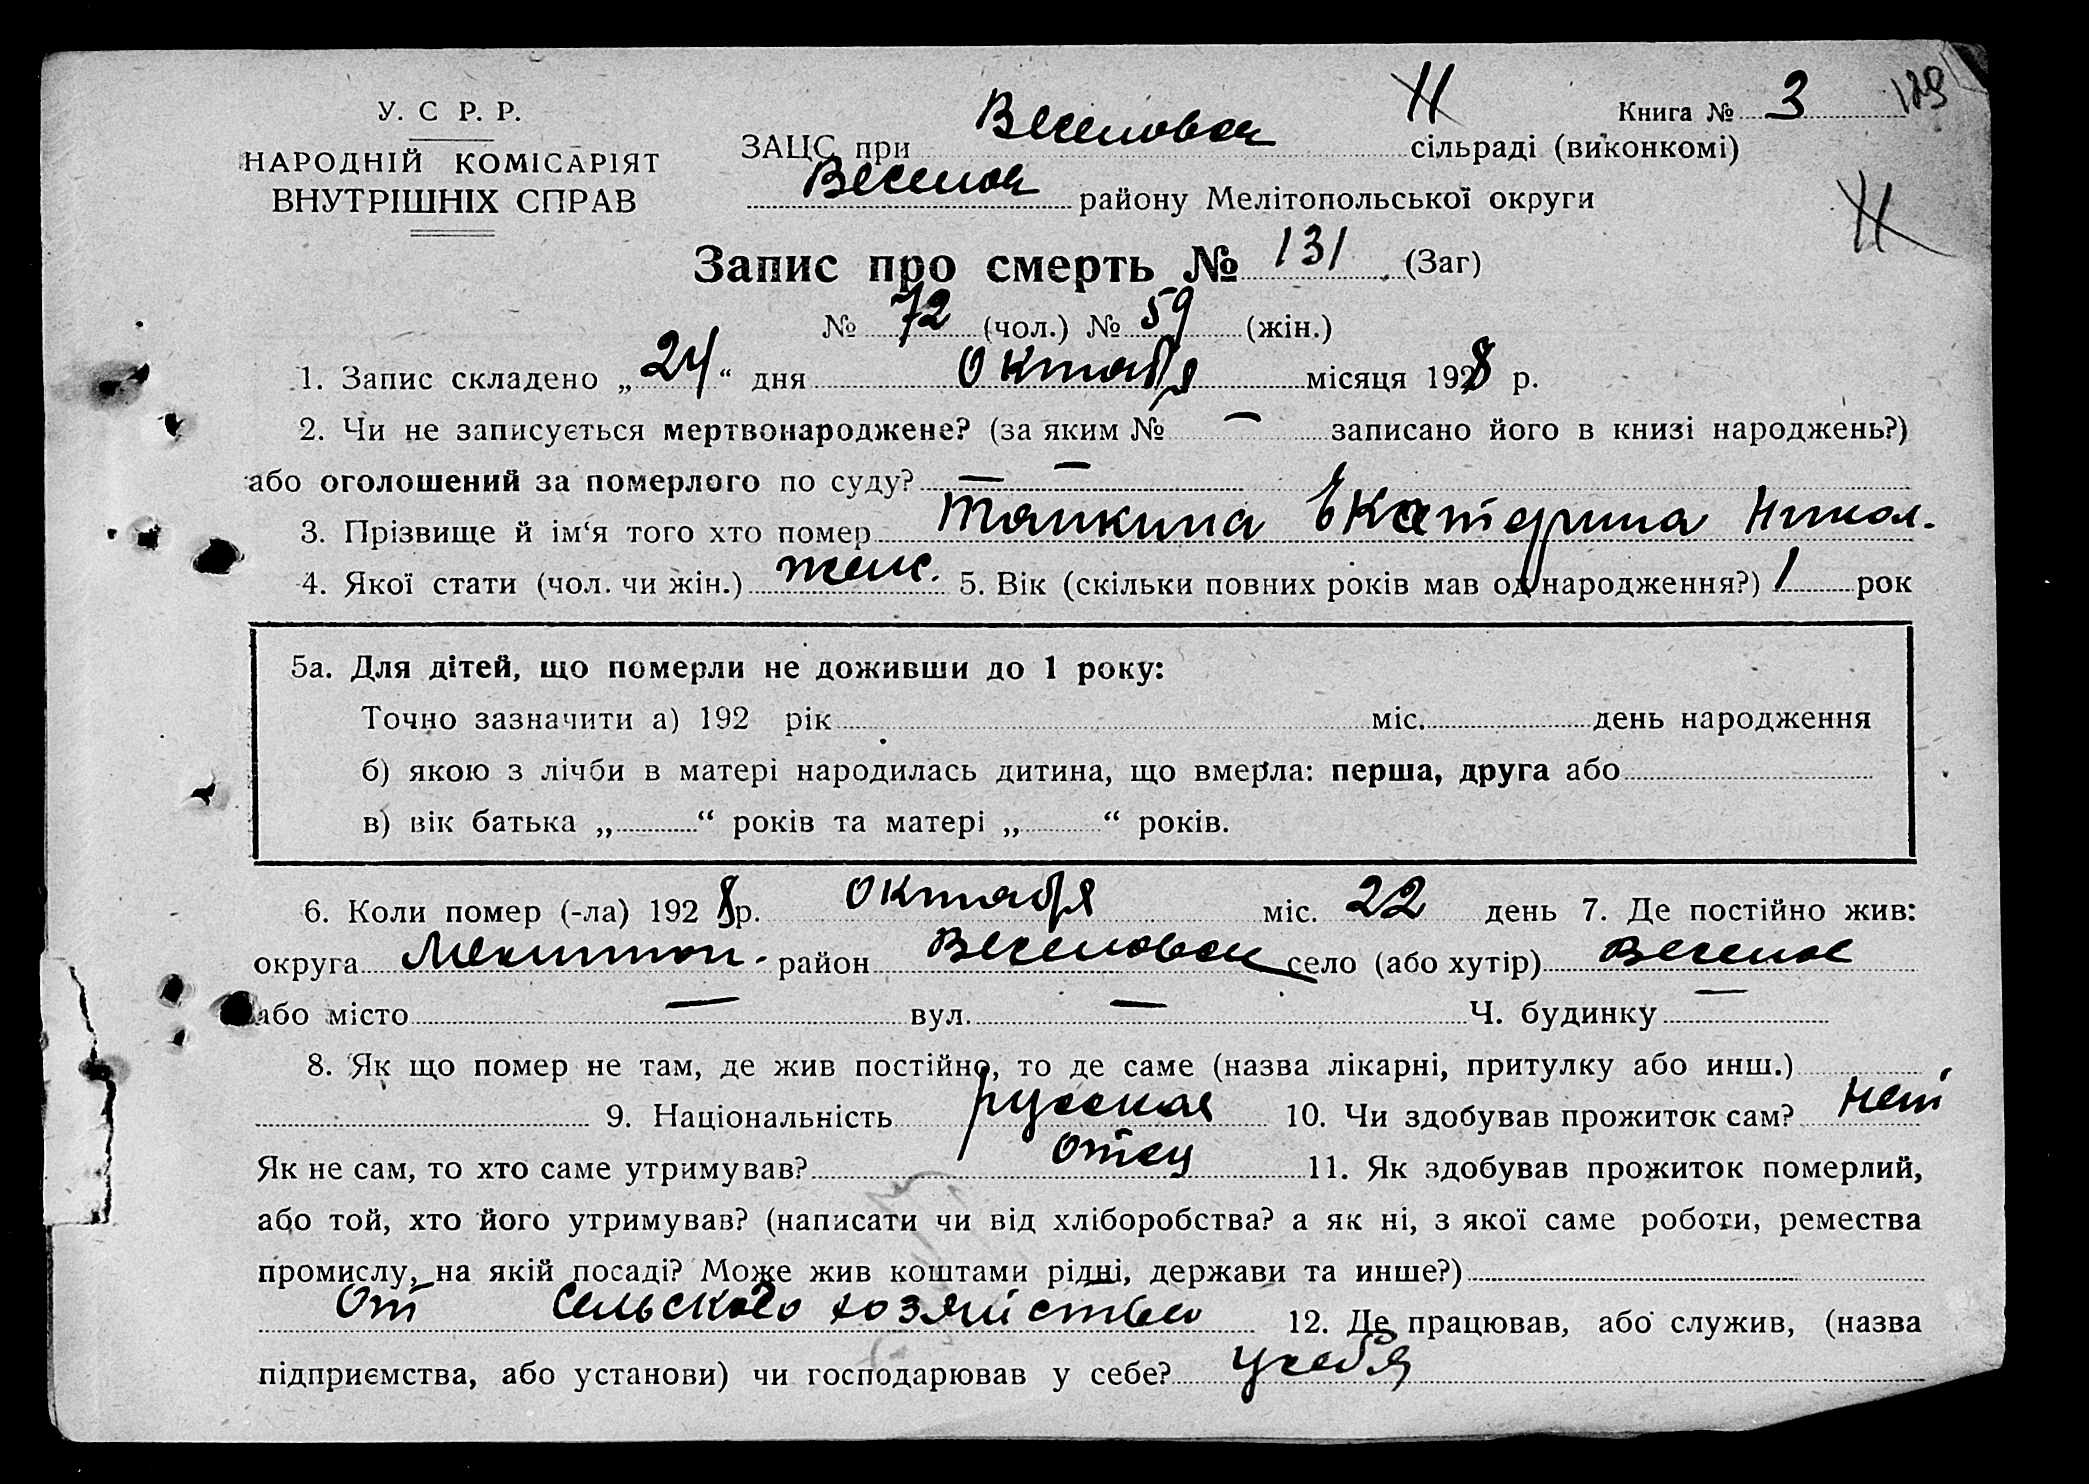 У. С Р. Р.
НАРОДНІЙ КОМІСАРІЯТ
ВНУТРІШНІХ СПРАВ
Книга № 3 129
ЗАЦС при Веселовск сільраді (виконкомі)
Веселов району Мелітопольської округи
Запис про смерть № 131 (Заг)
№ 72 (чол.) № 59 (жін.)
1. Запис складено „24“ дня Октября місяця 1928 р.
2. Чи не записується мертвонароджене? (за яким № — записано його в книзі народжень?)
або оголошений за померлого по суду? — —
3. Прізвище й ім‘я того хто помер Тяпкина Екатерина Никол.
4. Якої стати (чол. чи жін.) женс. 5. Вік (скільки повних років мав од народження?) 1 рок
5а. Для дітей, що померли не доживши до 1 року:
Точно зазначити а) 192 рік міс. день народження
б) якою з лічби в матері народилась дитина, що вмерла: перша, друга або
в) вік батька „ “ років та матері „ “ років.
6. Коли помер (-ла) 1928 р. Октября міс. 22 день 7. Де постійно жив:
округа Мелитоп. район Веселовск село (або хутір) Веселое
або місто — вул. — Ч. будинку —
8. Як що помер не там, де жив постійно, то де саме (назва лікарні, притулку або инш.)
9. Національність русская 10. Чи здобував прожиток сам? Нет
Як не сам, то хто саме утримував? отец 11. Як здобував прожиток померлий,
або той, хто його утримував? (написати чи від хліборобства? а як ні, з якої саме роботи, ремества
промислу, на якій посаді? Може жив коштами рідні, держави та инше?)
От сельского хозяйства 12. Де працював, або служив, (назва
підприємства, або установи) чи господарював у себе? у себя